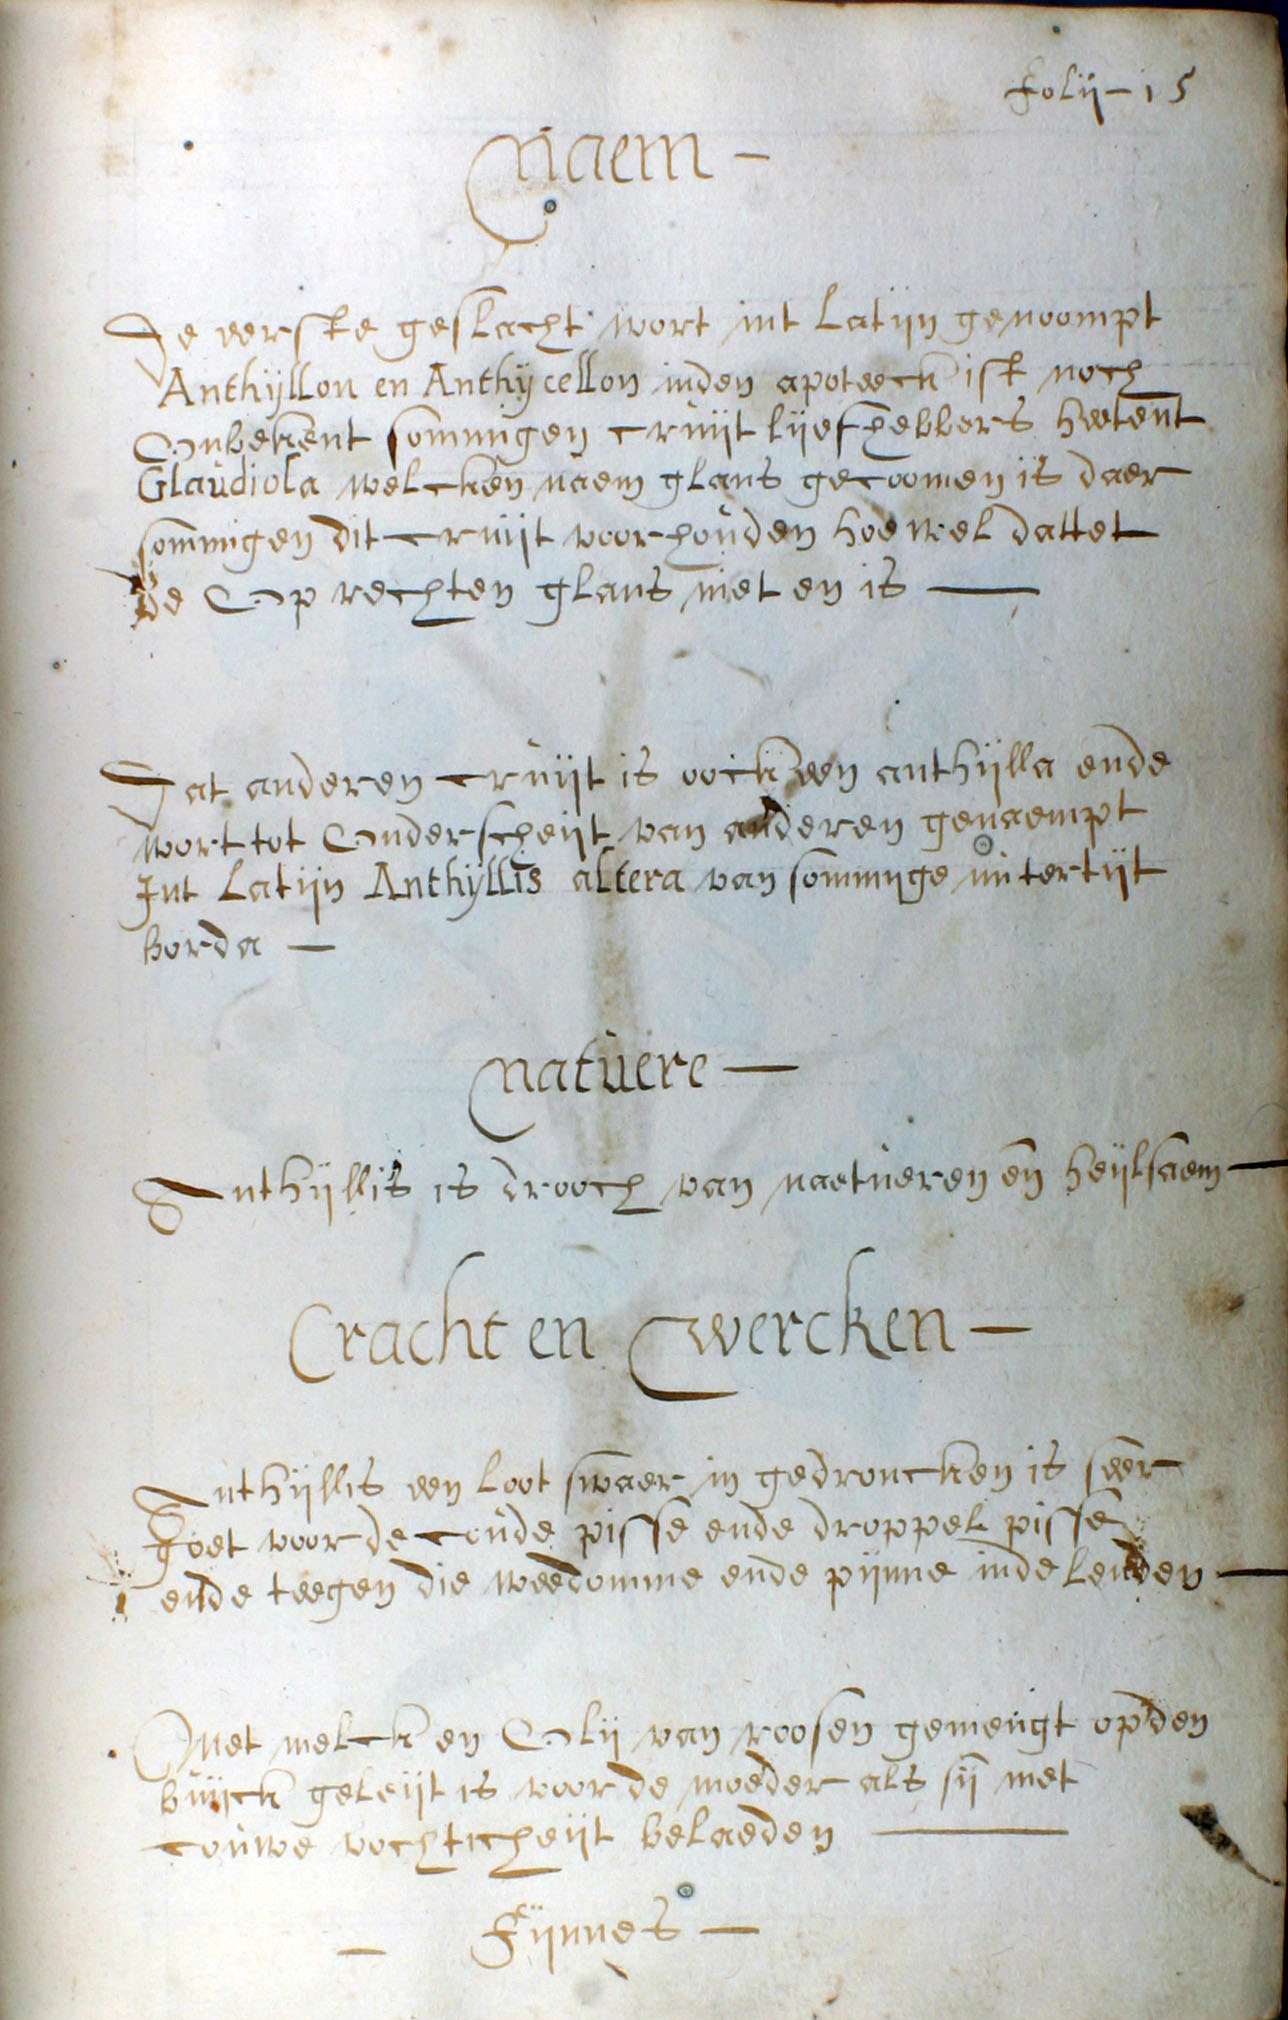 Folij - 15
Naem -
De eerste geslacht wort int Latijn genoompt
Anthÿllon en Anthÿcellon inden apoteeck ist noch
Onbekent sommigen cruijt lijefhebbers heetent
Glaudiola welcken naem glaus gecoomen is daer
sommigen dit cruijt voor houden hoe wel dattet
de Oprechten glaus niet en is —
Dat anderen cruijt is oock een anthijlla ende
wort tot Onderscheijt van anderen genaempt
Int Latijn Anthÿllis altera van sommige
borda —
Natuere —
Anthijllis is drooch van naetueren en heijlsaem —
Cracht en Wercken —
Anthijllis een loot swaer in gedroncken is seer
goet voor de coude pisse ende droppel pisse
ende teegen die weedomme ende pijnne inde lenden —
Met melck en Olij van roosen gemengt op den
buijck geleijt is voor de moeder als sij met
couwe vochticheijt belaeden —
— Fijnnes —